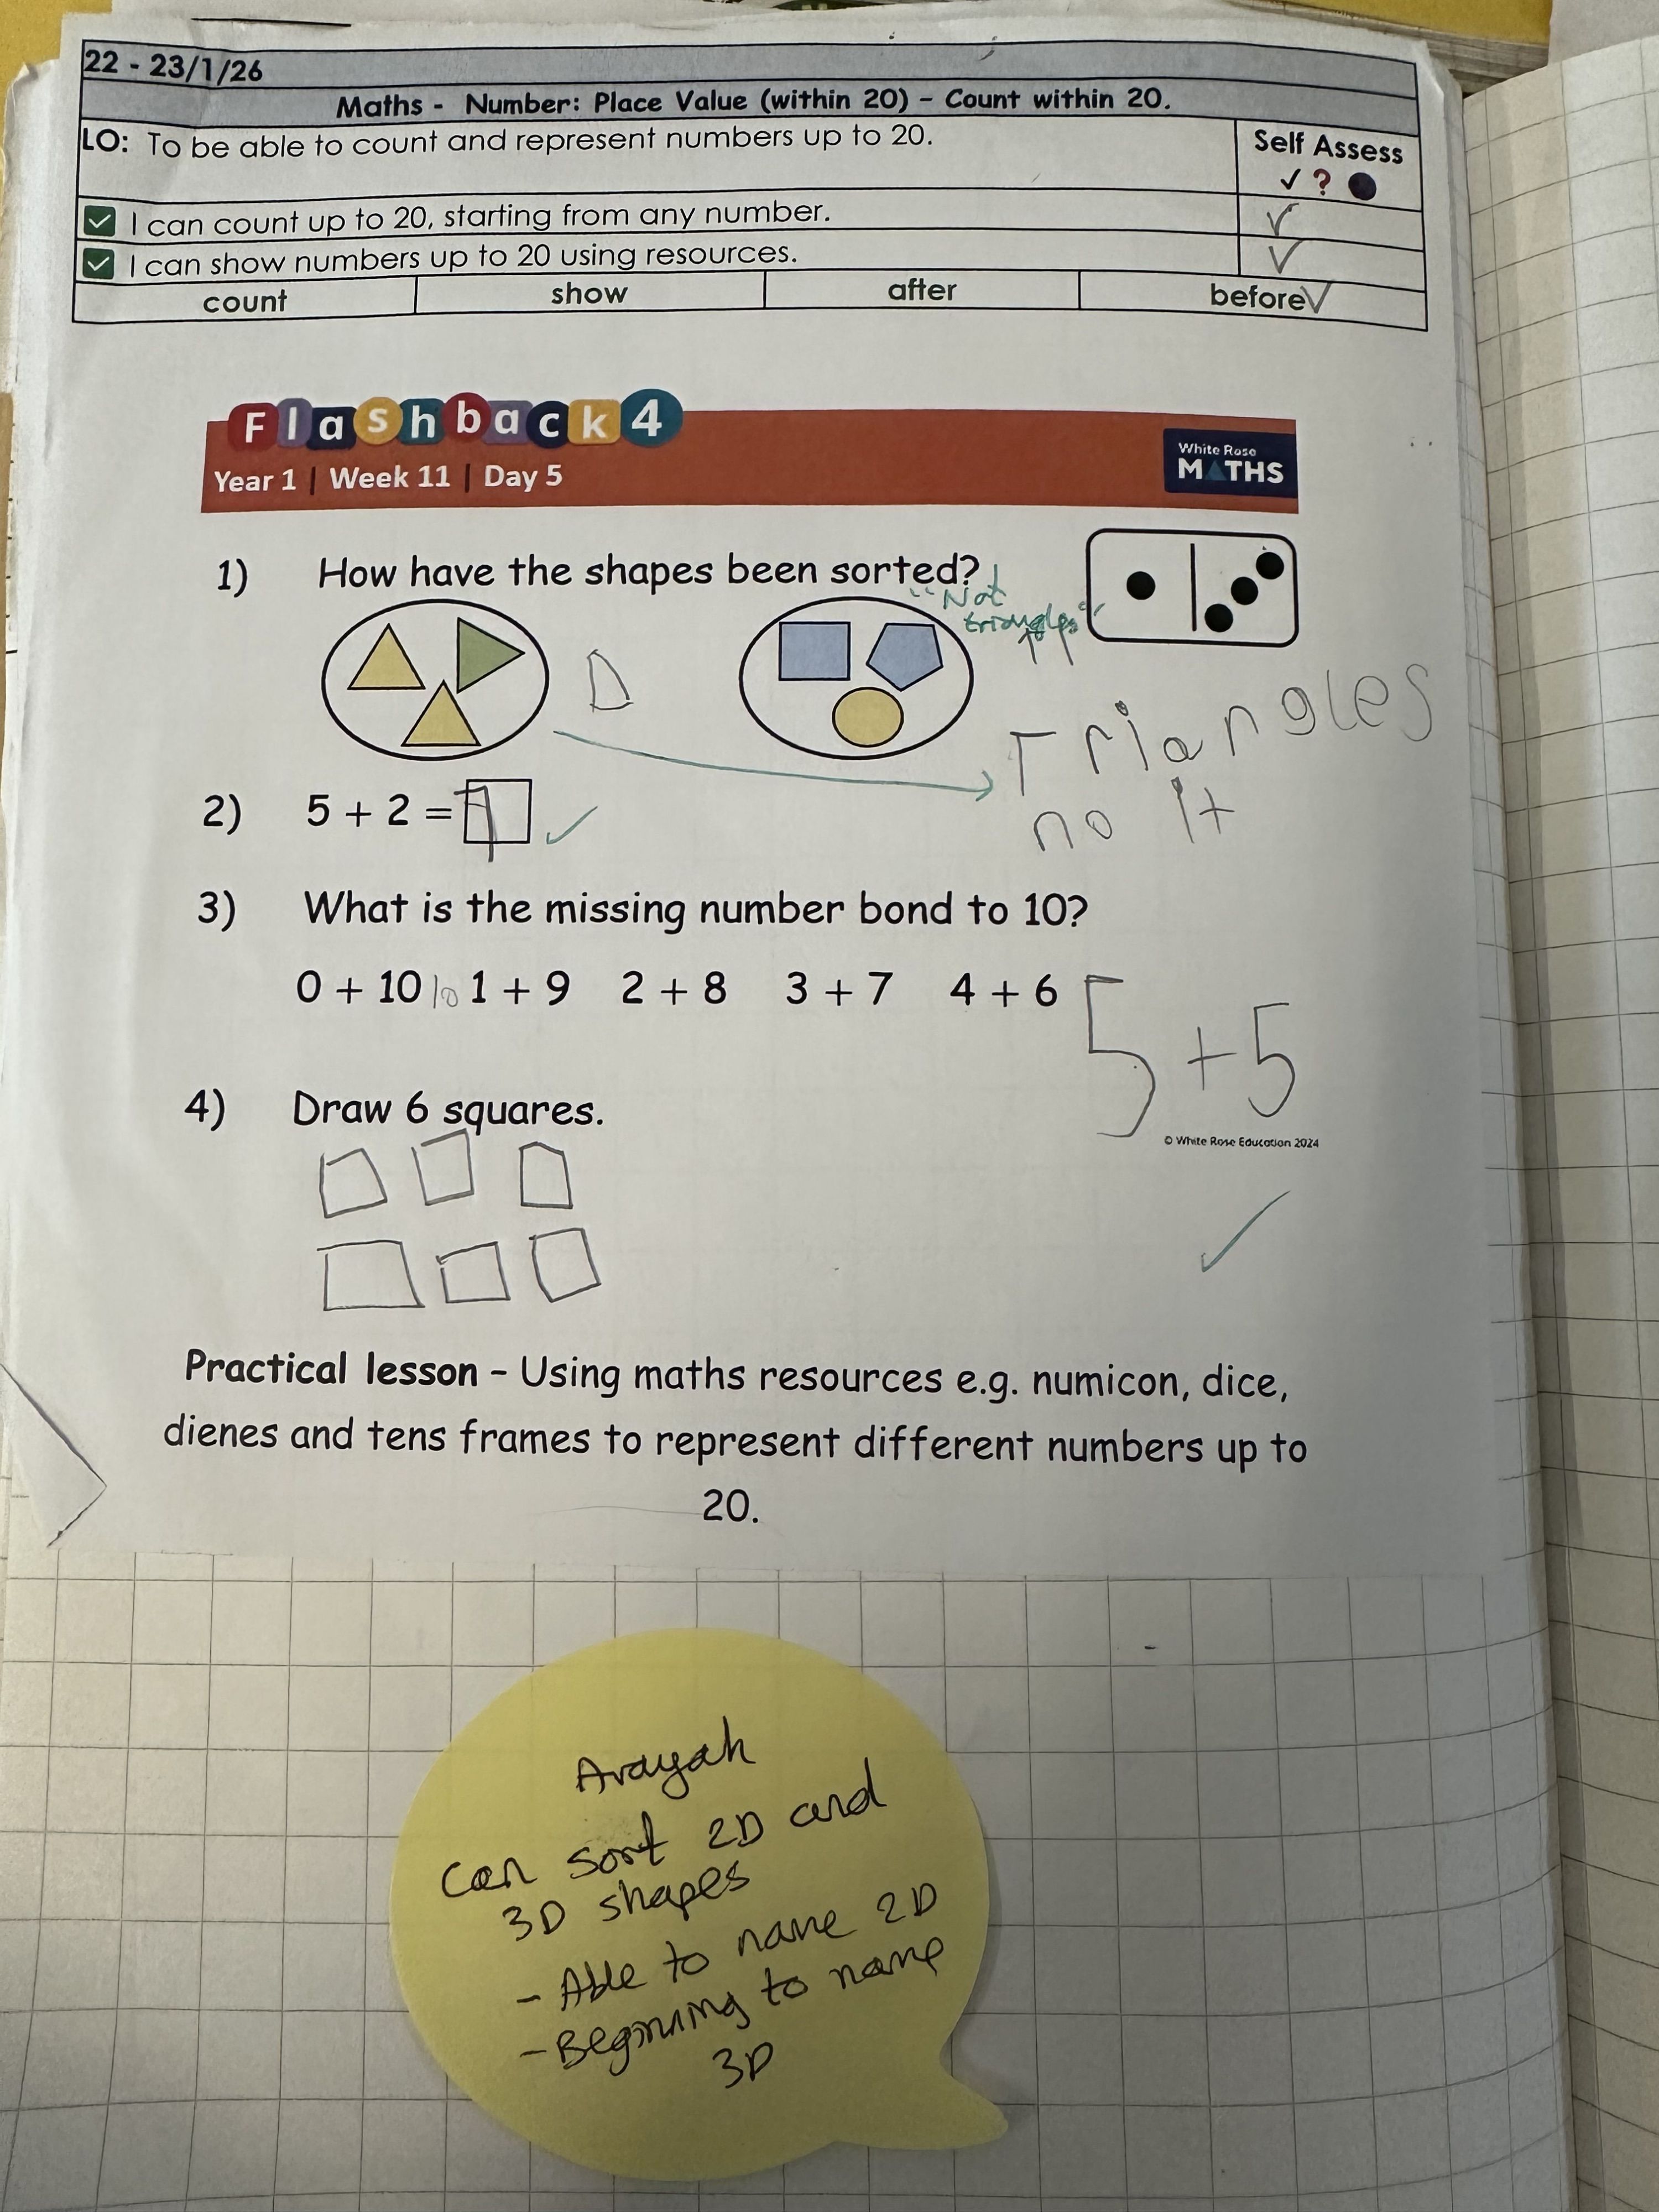 22 - 23/1/26
Maths - Number: Place Value (within 20) – Count within 20.
LO: To be able to count and represent numbers up to 20.
Self Assess
✓ ?
I can count up to 20, starting from any number.
✓
I can show numbers up to 20 using resources.
✓
count show after before ✓
Flashback 4
Year 1 | Week 11 | Day 5
White Rose
MATHS
1) How have the shapes been sorted?
"Not
triangles"
D
Triangles
no It
2) 5 + 2 = 7 ✓
3) What is the missing number bond to 10?
0 + 10 10 1 + 9 2 + 8 3 + 7 4 + 6 5 + 5
4) Draw 6 squares.
© White Rose Education 2024
✓
Practical lesson – Using maths resources e.g. numicon, dice,
dienes and tens frames to represent different numbers up to
20.
Arayah
Can sort 2D and
3D shapes
- Able to name 2D
- Beginning to name
3D